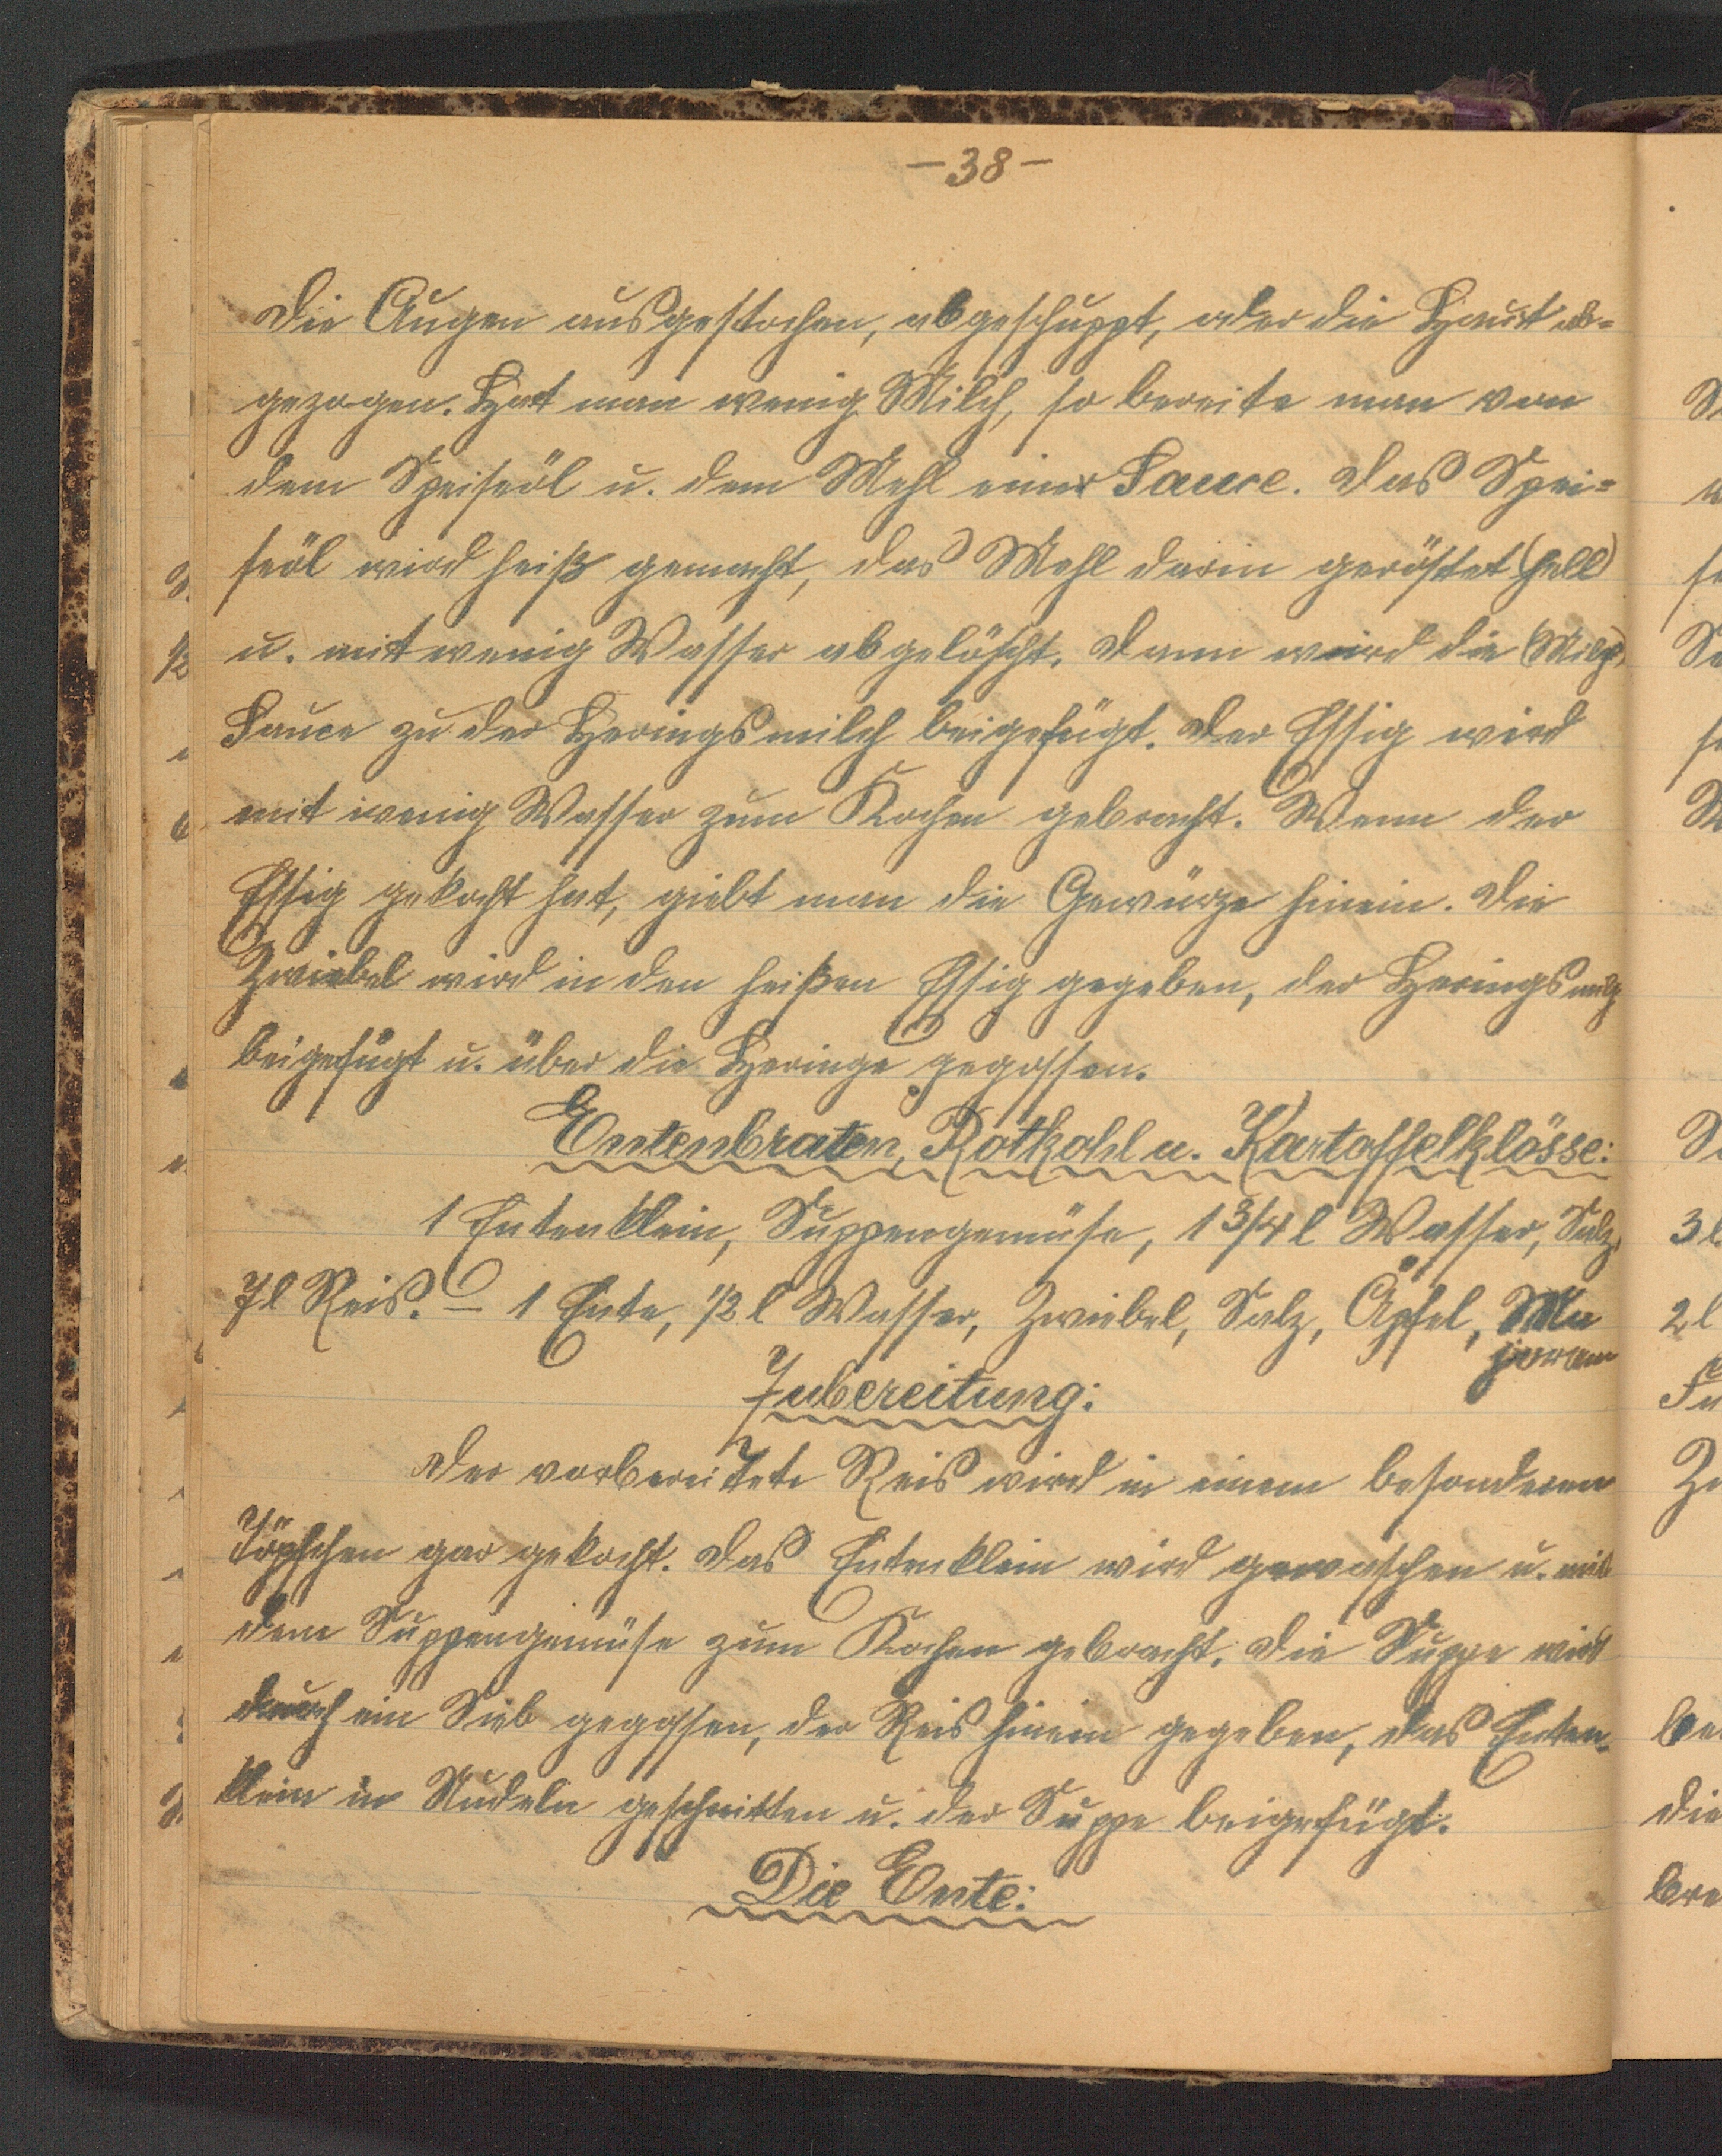 -38-
die Augen ausgestochen, abgeschuppt, oder die Haut ab=
gezogen. Hat man wenig Milch, so bereite man von
dem Speiseöl u. dem Mehl einer Sauce. Das Spei=
seöl wird heiß gemacht, das Mehl darin geröstet (hell)
u. mit wenig Wasser abgelöscht. Dann wird die (Milch)
Sauce zu der Heringsmilch beigefügt. Der Essig wird
mit wenig Wasser zum Kochen gebracht. Wenn der
Essig gekocht hat, giebt man die Gewürze hinein. Die
Zwiebel wird in den heißen Essig gegeben, der Heringsmilch
beigefügt u. über die Heringe gegossen.
Entenbraten, Rotkohl u. Kartoffelklösse:
1 Entenklein, Suppengemüse, 1 3/4 l Wasser, Salz,
7 l Reis. – 1 Ente, 1/2 l Wasser, Zwiebel, Salz, Äpfel, Ma
joran
Zubereitung:
Der vorbereitete Reis wird in einem besonderen
Töpfchen gar gekocht. Das Entenklein wird gewaschen u. mit
dem Suppengemüse zum Kochen gebracht. Die Suppe wird
durch ein Sieb gegossen, der Reis hinein gegeben, das Enten-
klein in Nudeln geschnitten u. der Suppe beigefügt.
Die Ente: